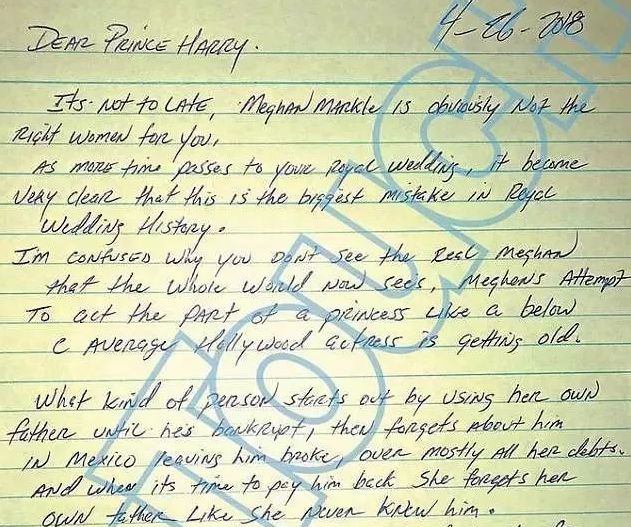 4-26-2018
DEAR PRINCE HARRY.
Its. Not to LATE, Meghan Markle is obviously Not the
Right women for you,
As more time passes to your Royal Wedding, it became
very clear that this is the biggest mistake in Royal
Wedding History.
I'm confused why you don't see the Real Meghan
that the whole world now sees, Meghans Attempt
To act the part of a princess Like a below
C Average Hollywood actress is getting old.
What kind of person starts out by using her own
father until he's bankrupt, then forgets about him
in Mexico leaving him broke, over mostly all her debts.
And when its time to pay him back she forgets her
own father Like she never knew him.